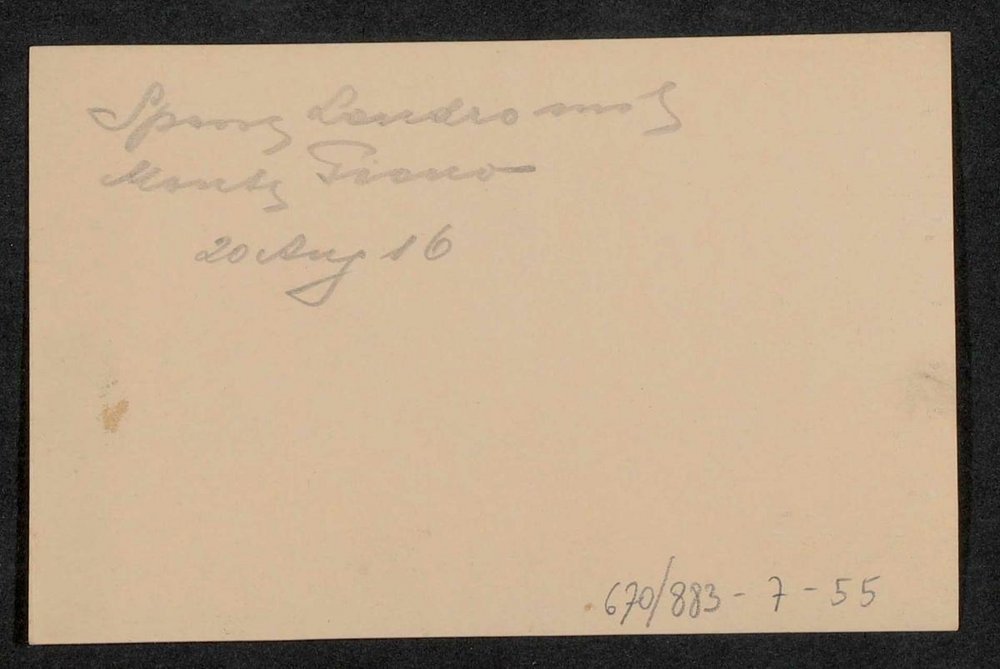 Sperre Landro mit
Monte Piano
20 Aug 16
670/883 - 7 - 55